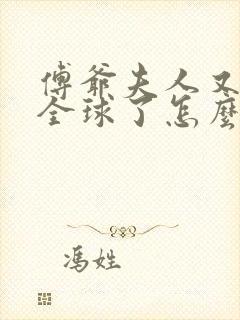 傅爺夫人又
全球了怎麼
馮姓